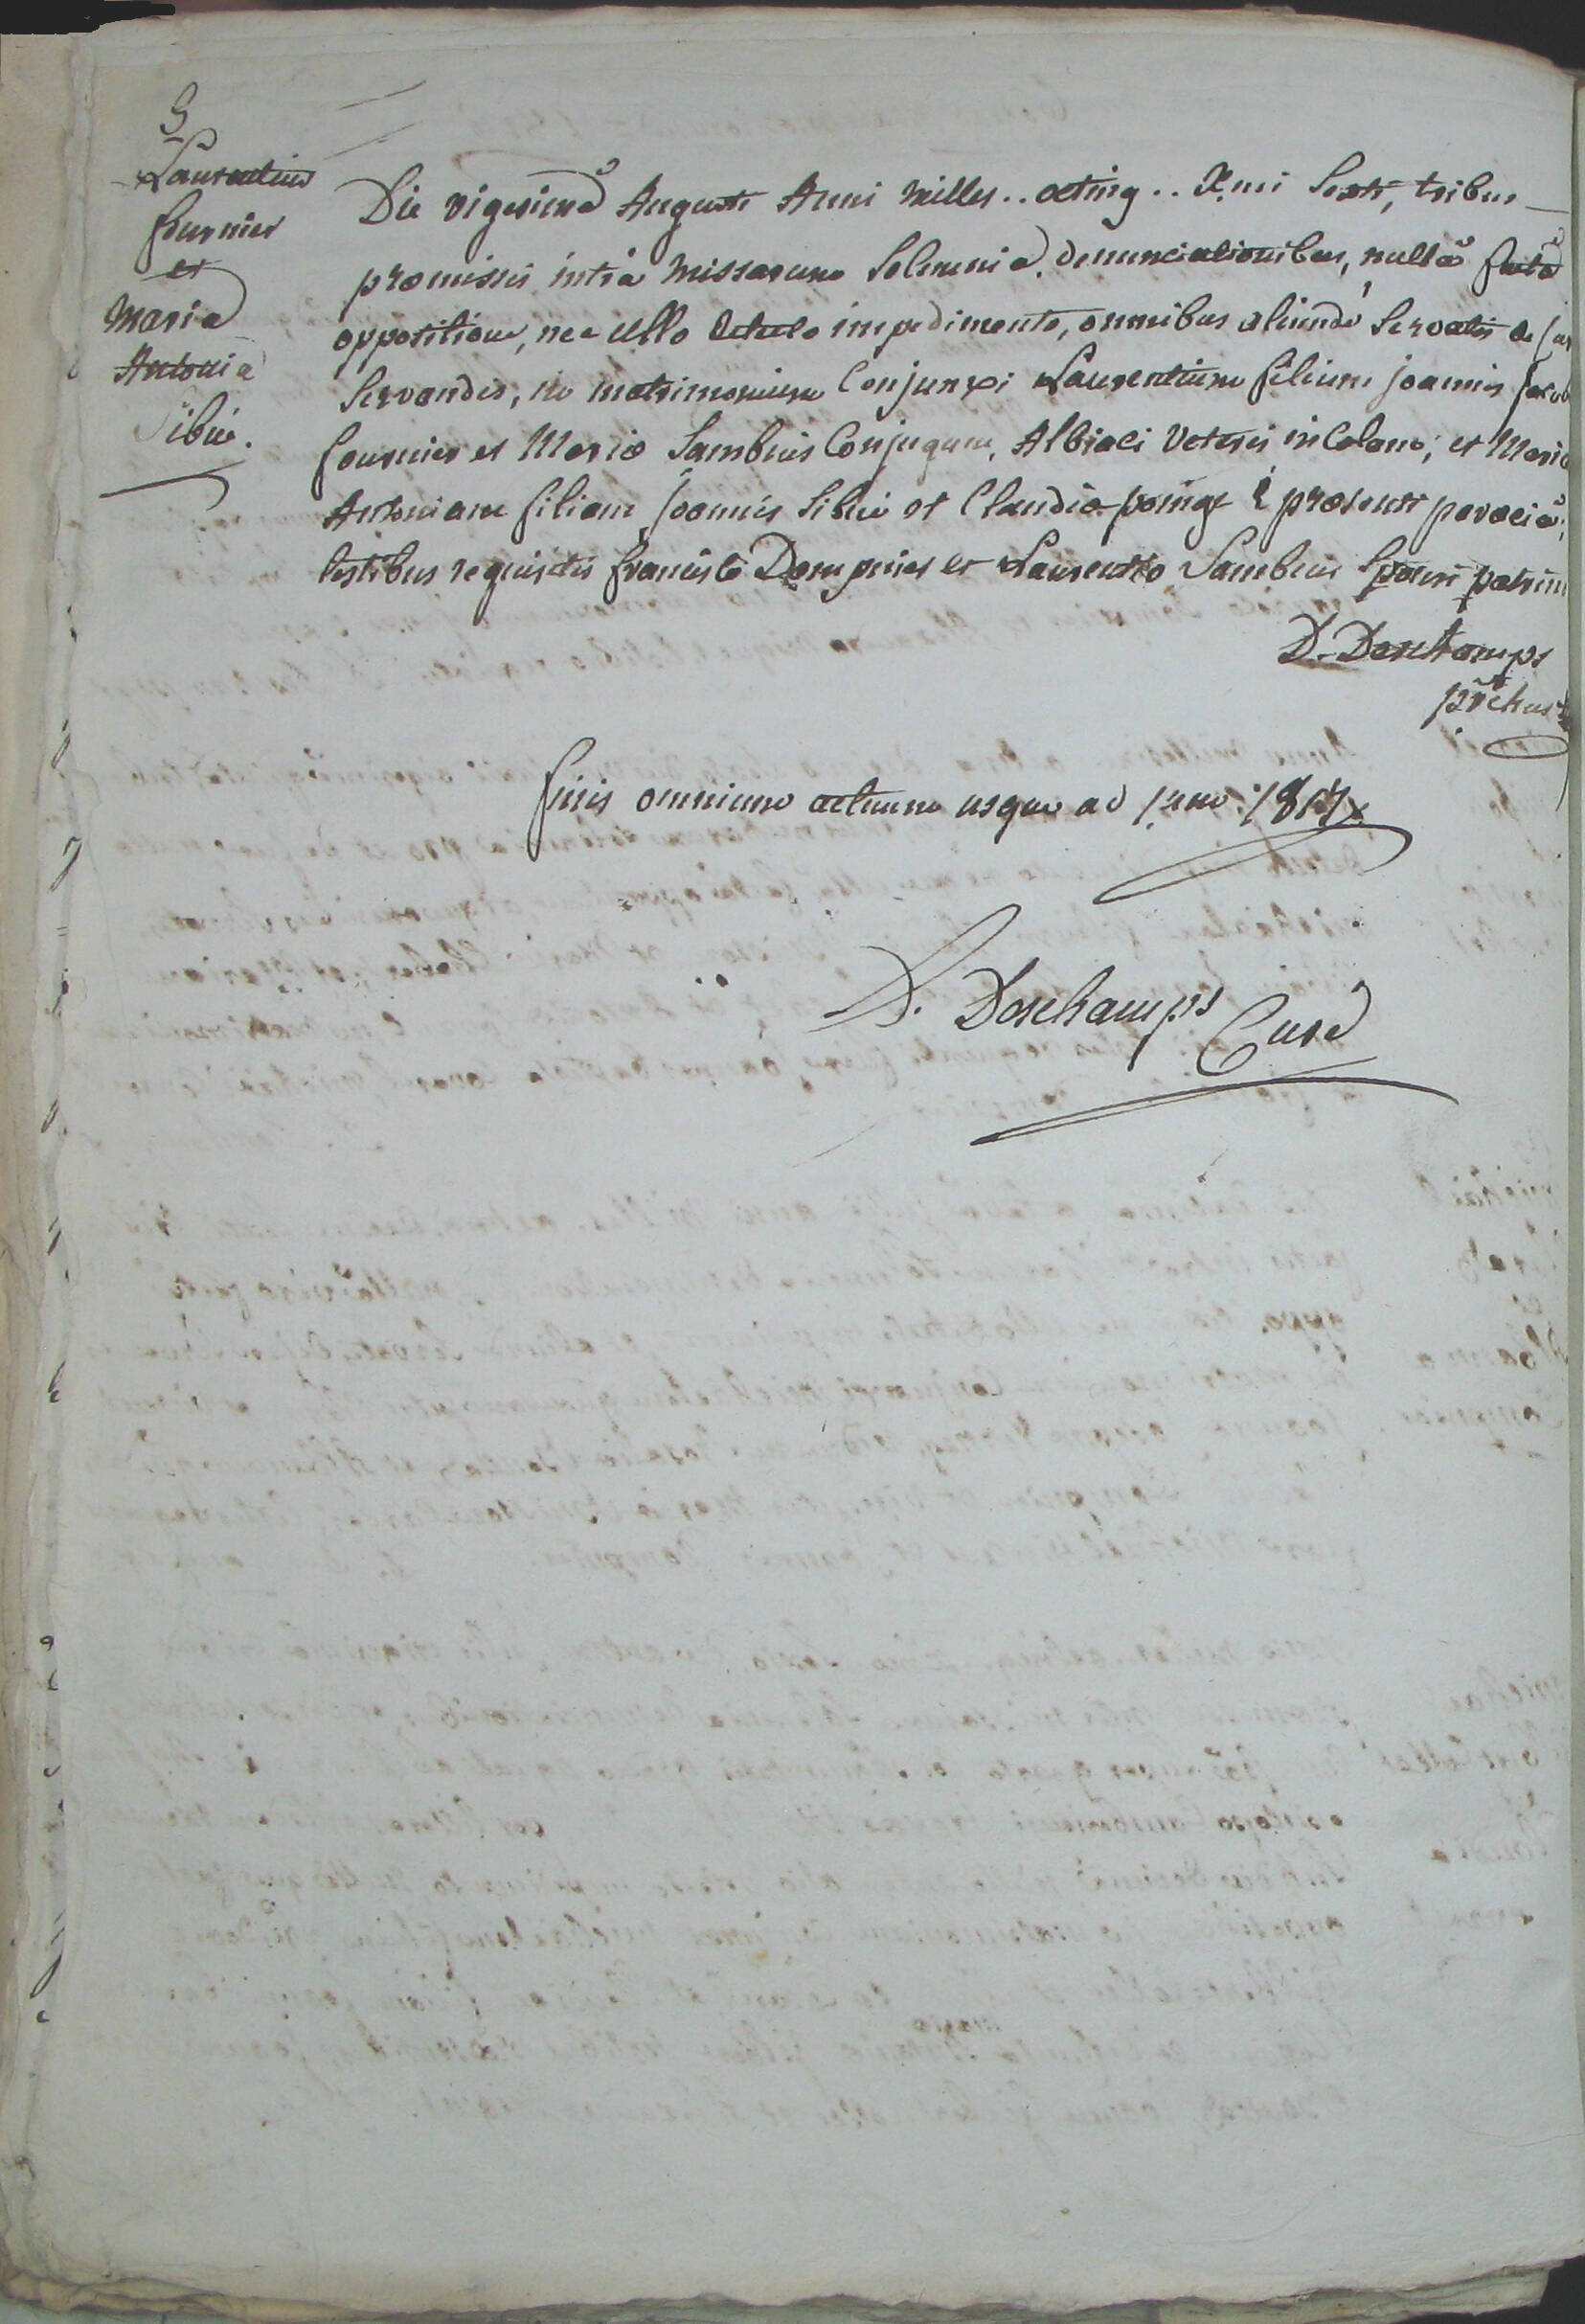 9
Laurentius
fournier
et
Maria
Antonia
Sibué.
Die vigesimâ Augusti Anni milles.. octing.. X.mi Sexti, tribus
præmissis intrà missarum Solemnia denunciationibus, nullâ factâ
oppositione, nec ullo detecto impedimento, omnibus aliundè Servatis de jur
Servandis, in matrimonium Conjunxi Laurentium filium joannis jacob
fournier et Mariæ Sambuis Conjugum, Albiaci Veteris incolam; et Maria
Antoniam filiam joannis Sibué et Claudiæ è præsenti parociâ;
testibus requisitis francisco Dompnier et Laurentio Sambuis Sponsi patrin
D. Deschamps
p̃rchus
finis omnium actuum usque ad 1.um 1817.
D. Deschamps Curé